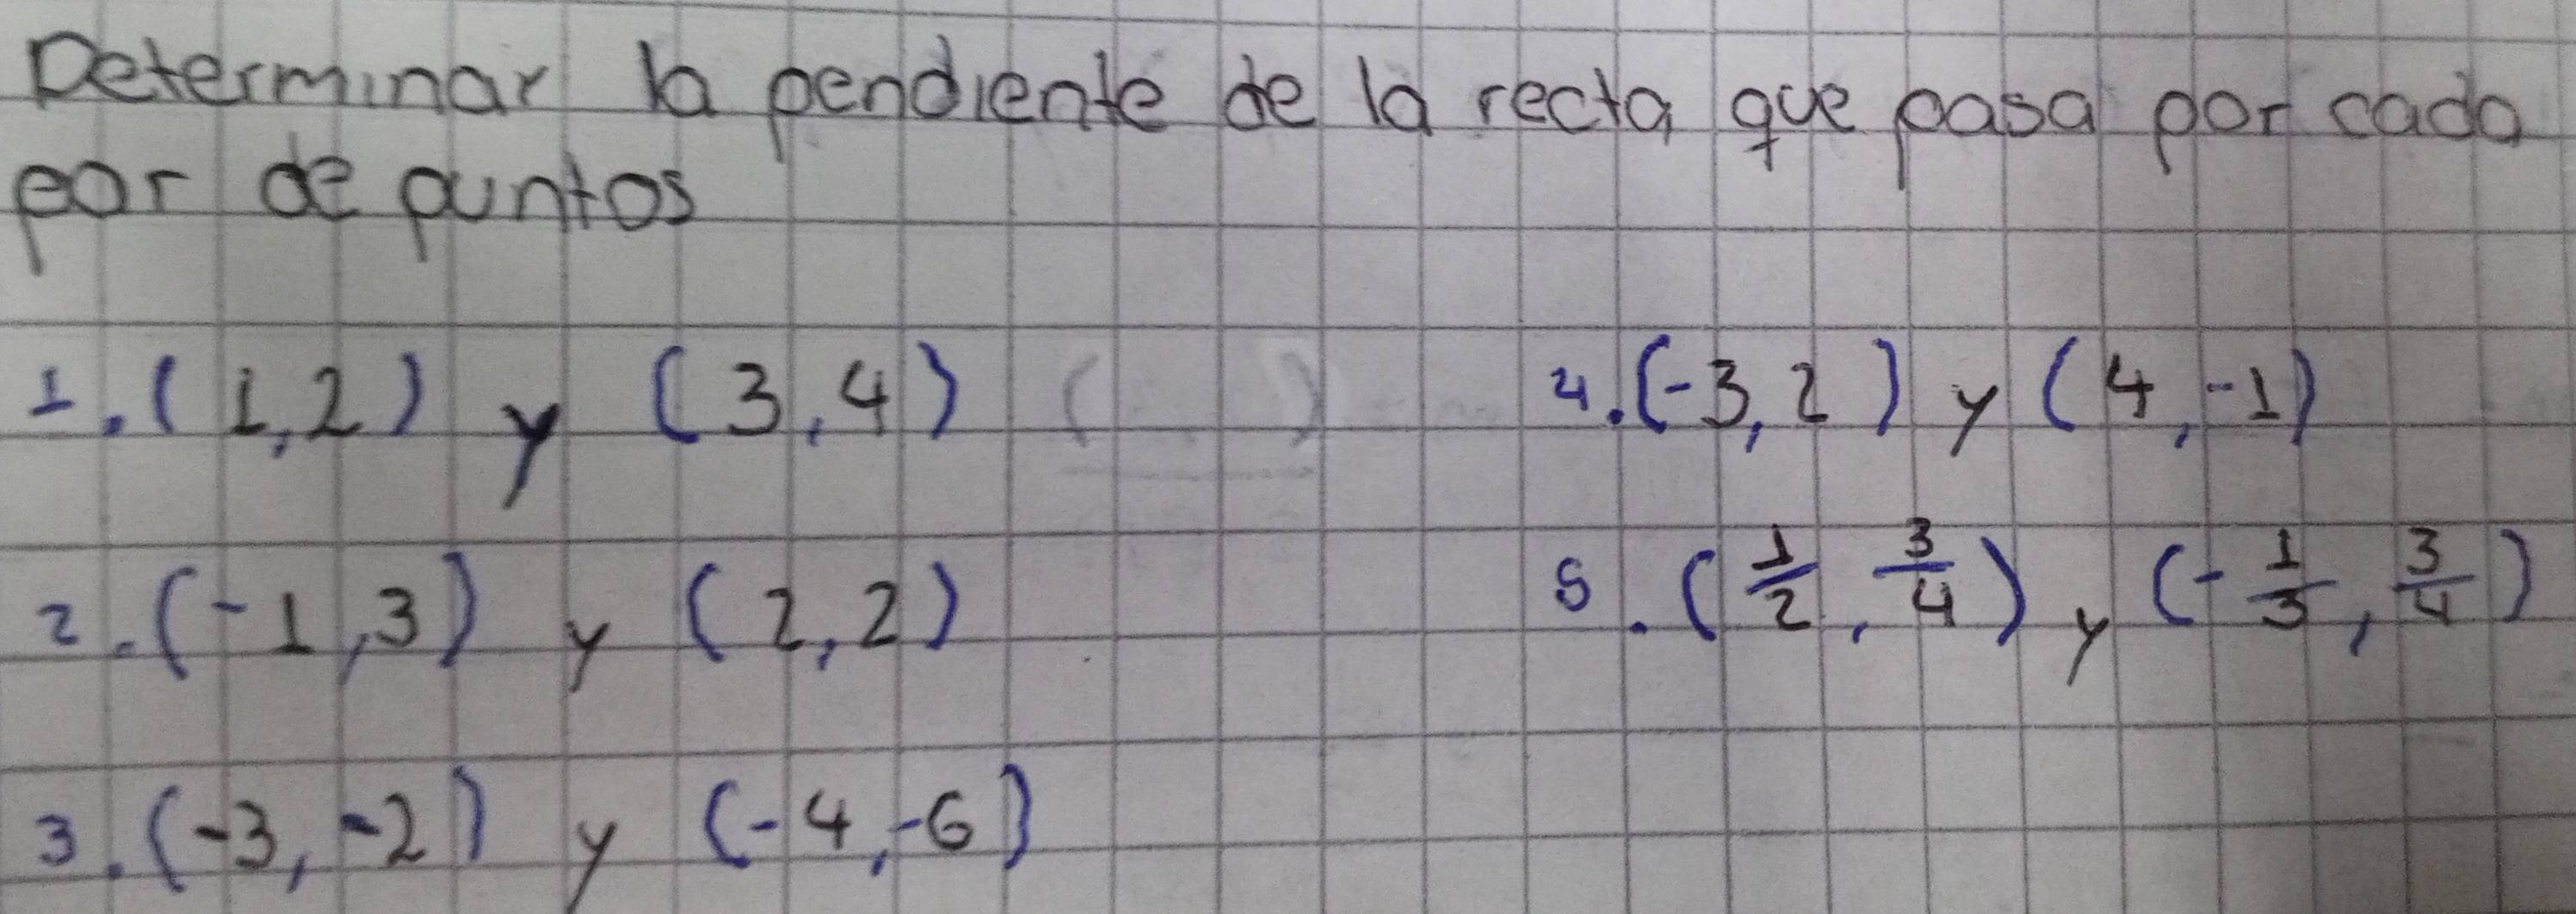 Determinar la pendiente de la recta que pasa por cada
par de puntos
1. (1,2) y (3,4)
2. (-1,3) y (2,2)
3. (-3,-2) y (-4,-6)
4. (-3,2) y (4,-1)
5. (1/2, 3/4) y (-1/3, 3/4)